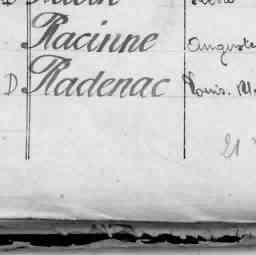 Racinne Auguste
D Radenac Louis. M
21